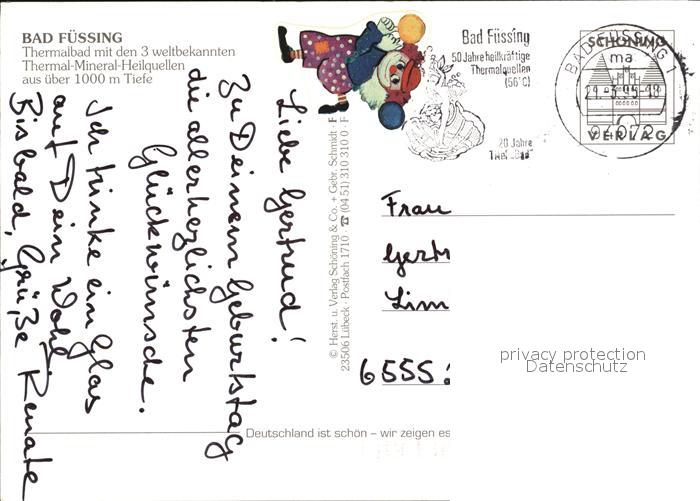 BAD FÜSSING
Thermalbad mit den 3 weltbekannten
Thermal-Mineral-Heilquellen
aus über 1000 m Tiefe
Liebe Gertrud!
Zu Deinem Geburtstag
die allerherzlichsten
Glückwünsche.
Ich trinke ein Glas
auf Dein Wohl
Bis bald, Grüße Renate
© Herst. u. Verlag Schöning & Co. + Gebr. Schmidt · F
23506 Lübeck · Postfach 1710 · ☎ (04 51) 310 310 0 · F
Bad Füssing
50 Jahre heilkräftige
Thermalquellen
(56°C)
20 Jahre
BAD FÜSSING 1
ma
94072
SCHÖNING
VERLAG
Frau
Gert
Lim
6555
Deutschland ist schön – wir zeigen es
privacy protection
Datenschutz